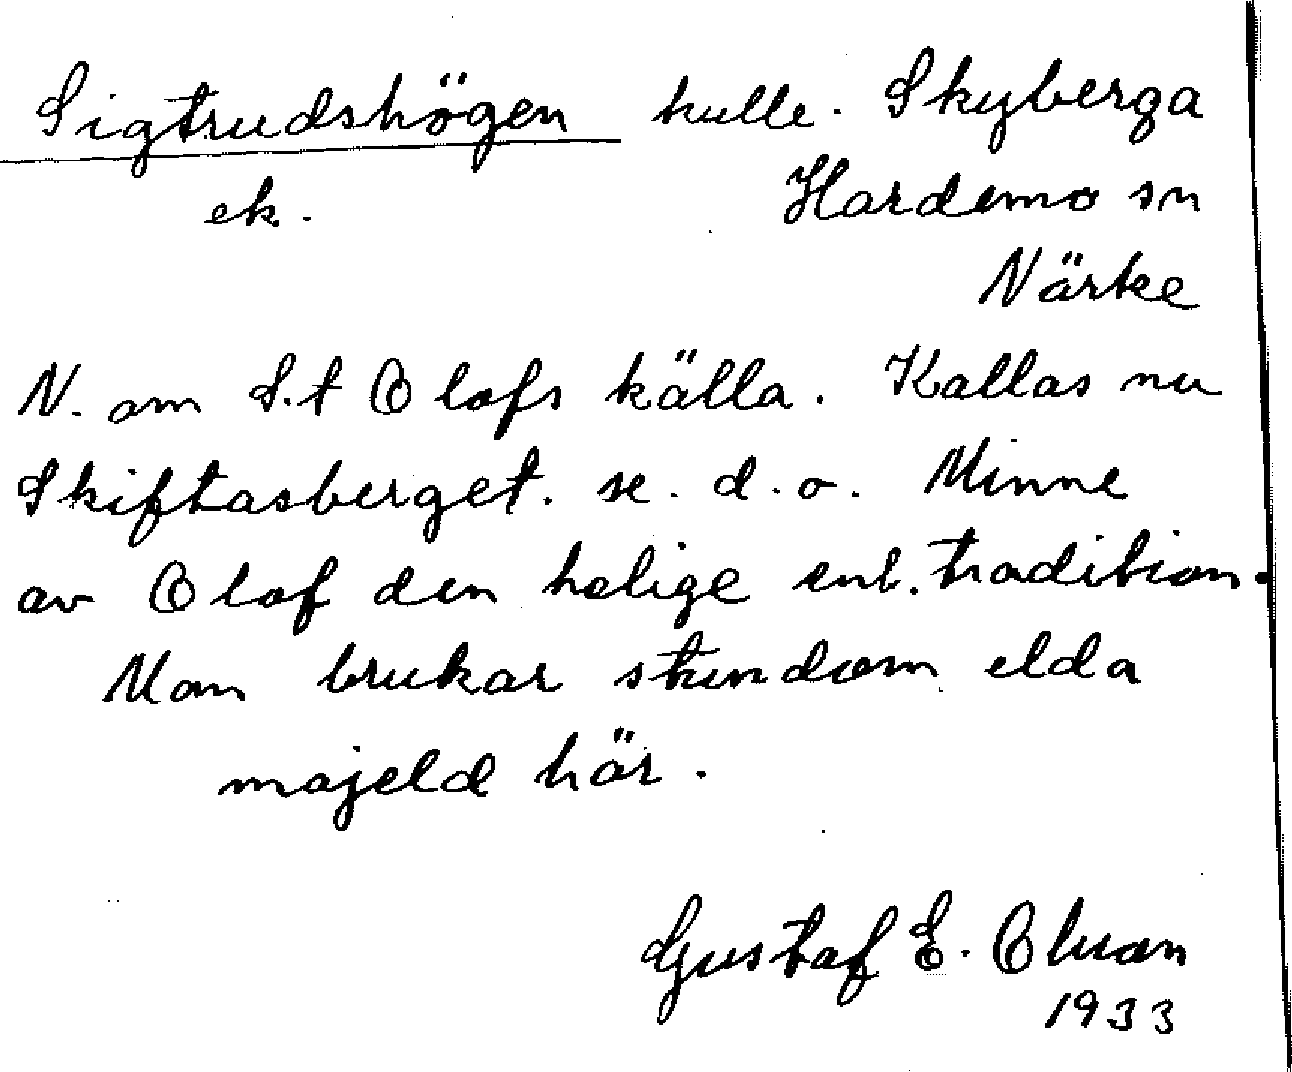 Sigtrudshögen kulle. Skyberga
ek. Hardemo sn
Närke
N. om S.t Olofs källa. Kallas nu
Skiftasberget. se. d.o. Minne
av Olof den helige enl. tradition.
Man brukar stundom elda
majeld här.
Gustaf E.
1933